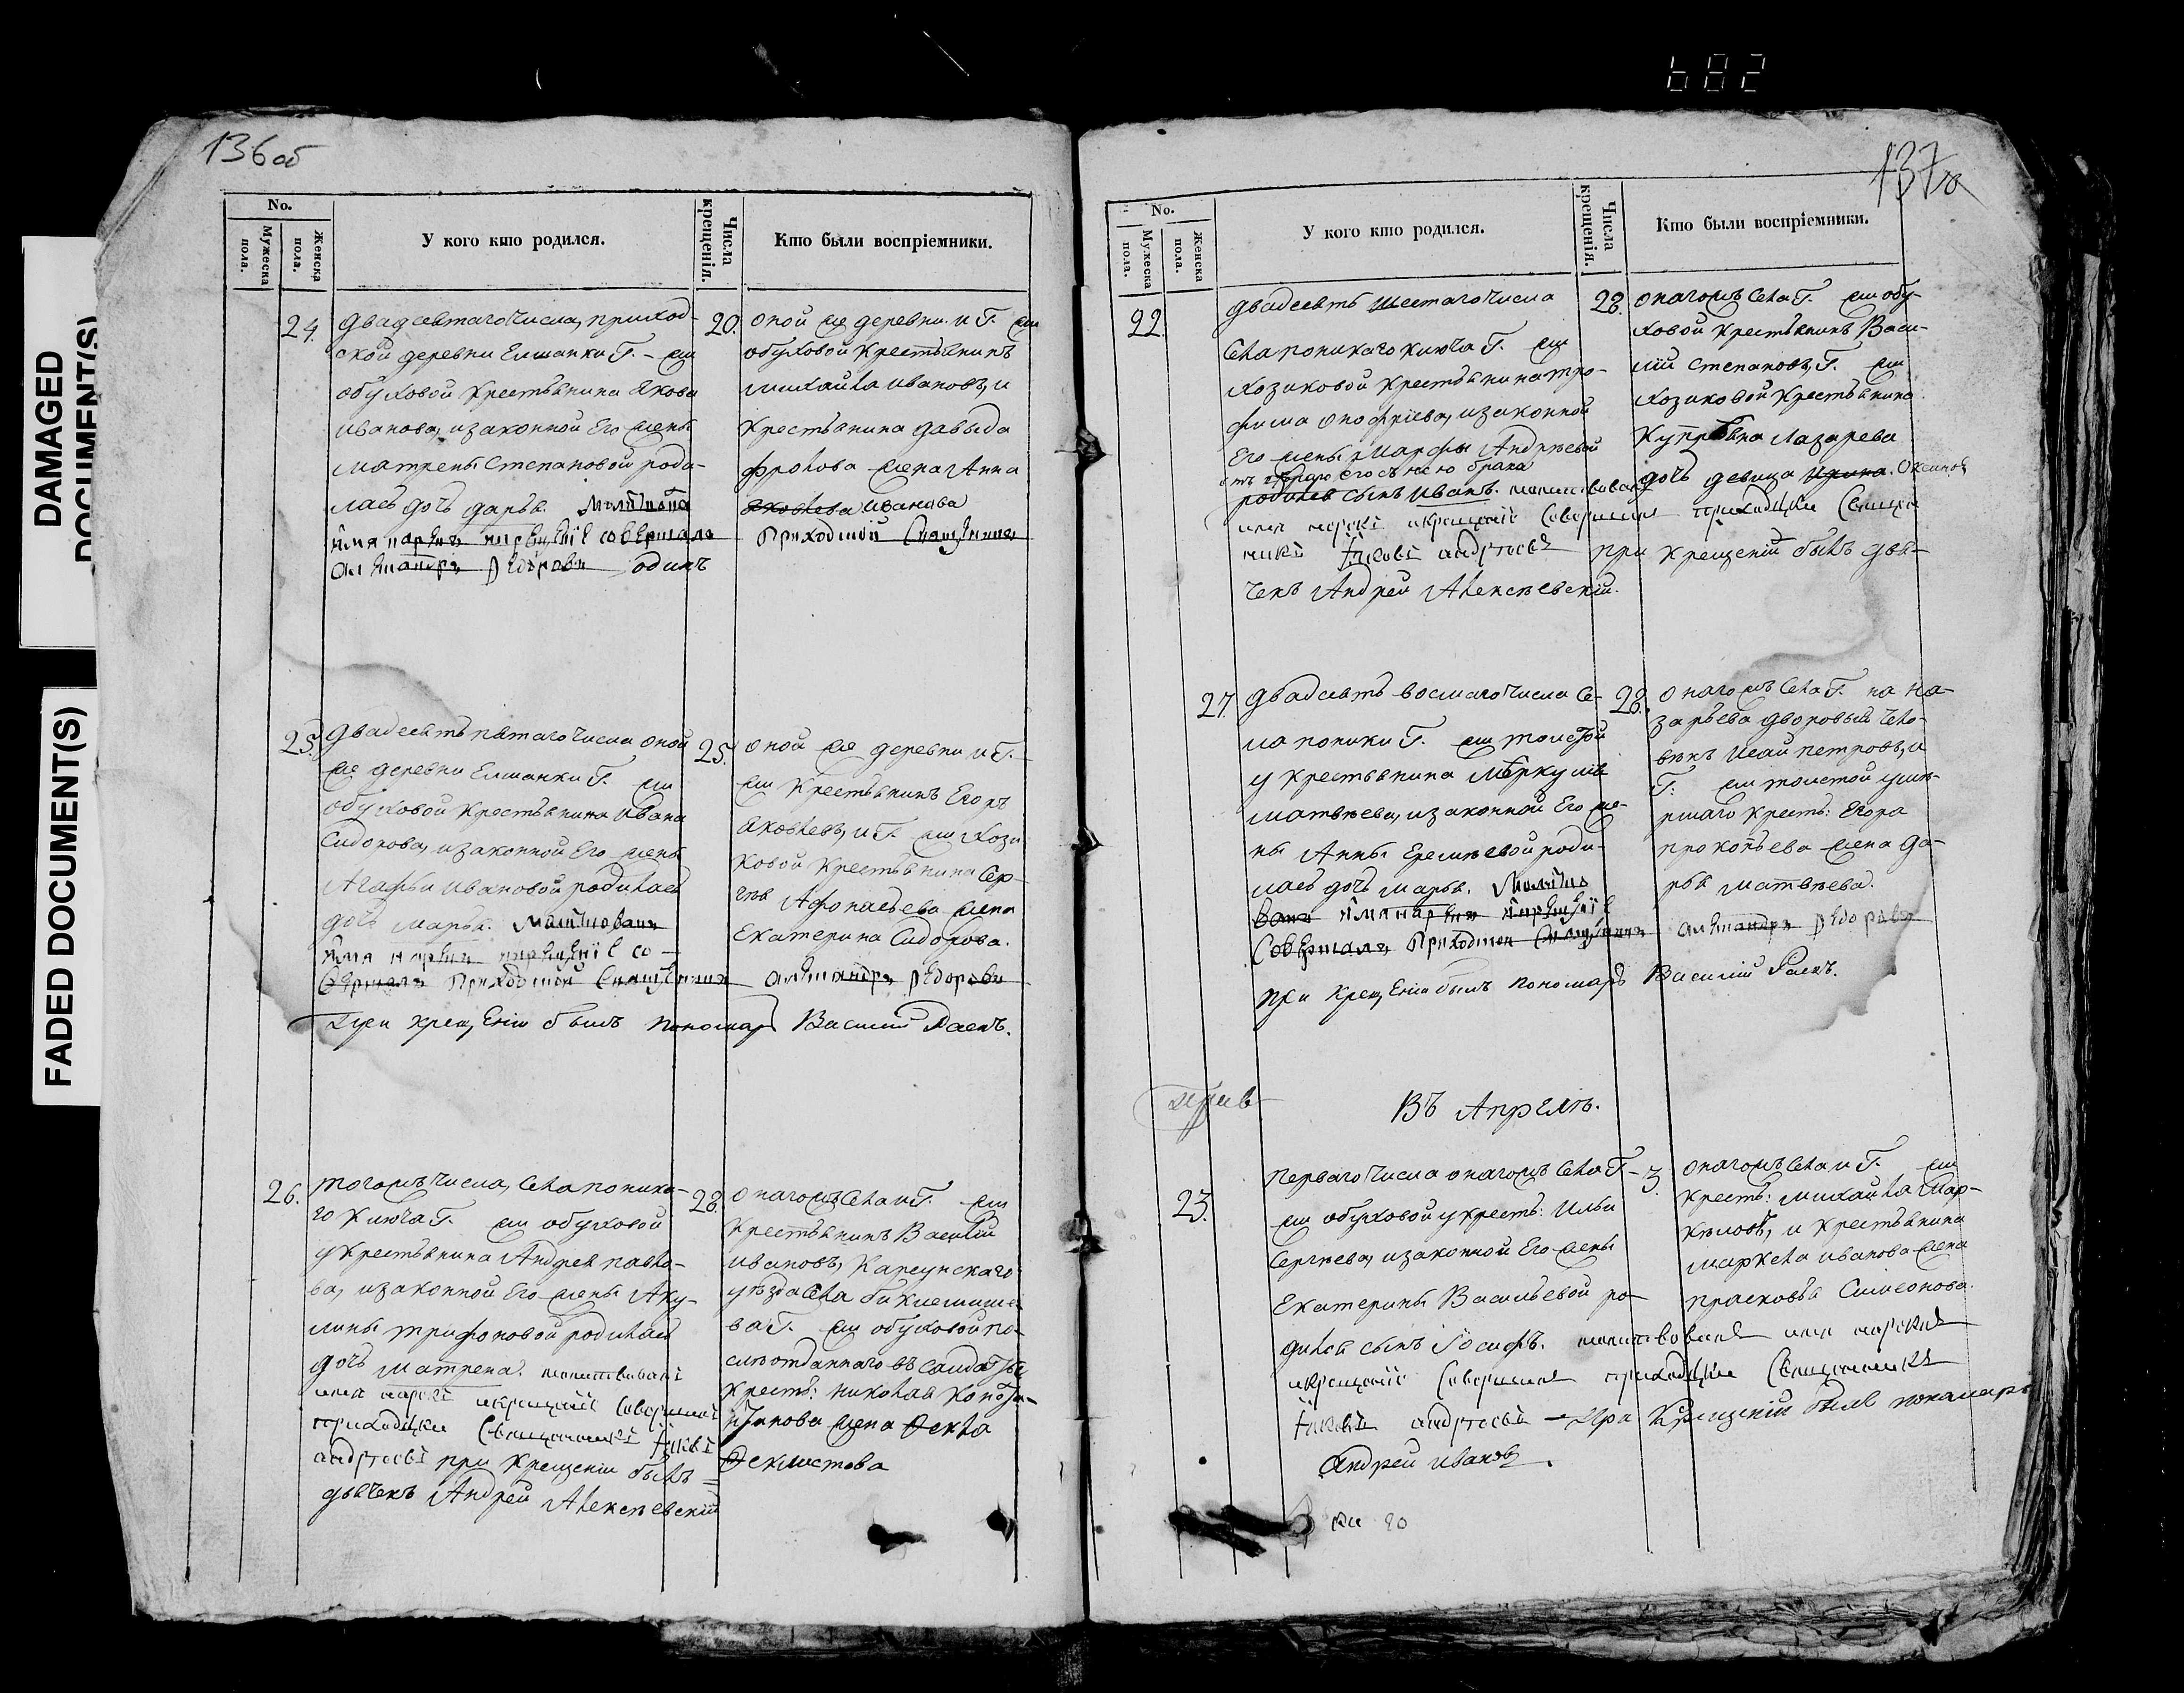 682
DAMAGED
DOCUMENT(S)
FADED DOCUMENT(S)
136 об
No.
Мужеска пола.
Женска пола.
У кого кто родился.
Числа крещенія.
Кто были воспріемники.
24.
двадсятаго числа, приход-
ской деревни Елшанки Г. - жи
обуховой крестьянина Якова
Иванова, и законной его жены
Матрены Степановой роди-
лась дочь дарья. Молитвовалъ
имя нарекъ и крещеніе совершалъ
Александръ Ѳедоровъ одинъ
20.
оной же деревни и Г. жи
обуховой крестьянинъ
Михайла Ивановъ, и
крестьянина давыда
фролова жена Анна
Яковлева Иванова
Приходской Священникъ
25.
двадсять пятаго числа оной
же деревни Елшанки Г. жи
обуховой крестьянина Ивана
Сидорова, и законной его жены
Агафьи Ивановой родилась
дочь Марья. Молитвовалъ
имя нарекъ и крещеніе со-
вершалъ Приходской Священникъ Александръ Ѳедоровъ
При крещеніи былъ пономарь Василий Раевъ.
25.
оной же деревни и Г.
жи крестьянинъ Егоръ
Яковлевъ, и Г. жи Кози
ковой крестьянина Сер-
гея Афонасьева жена
Екатерина Сидорова.
26.
тогожъ числа, села поника-
го ключа Г. жи обуховой
у крестьянина Андрея павло-
ва, и законной его жены Аку-
лины трифоновой родилась
дочь Матрена. молитвовалъ
имя нарекъ и крещеніе совершалъ
приходскій Священникъ
андреевъ при крещеніи былъ
дьячекъ Андрей Алексѣевскій
28.
онагожъ села и Г. жи
крестьянинъ Василій
Ивановъ, Карсунскаго
уѣзда села
ва Г. жи обуховой по-
слѣ отданнаго въ салдаты
крестъ: Николая
жена Ѳекла
Ѳеклистова
137
No.
Мужеска пола.
Женска пола.
У кого кто родился.
Числа крещенія.
Кто были воспріемники.
22.
двадсять шестаго числа
села поникаго ключа Г. жи
Козиковой крестьянина тро-
фима онофріева, и законной
его жены Марфы Андрѣевой
отъ его съ нею брака
родился сынъ Иванъ. молитвовалъ
имя нарекъ и крещеніе совершалъ приходскій Священ
никъ андреевъ при крещеніи былъ дья-
чекъ Андрей Алексѣевскій.
28.
онагожъ села Г. жи обу-
ховой крестьянинъ Васи-
лій Степановъ, Г. жи
Козиковой крестьянина
Лазарева
дочь девица Ирина.
27.
двадсять восмаго числа се-
ла поники Г. жи толстой
у крестьянина Меркулія
Матвѣева, и законной его же-
ны Анны Еремѣевой роди-
лась дочь Марья. Молитво
валъ имя нарекъ и крещеніе
Совершалъ Приходской Священникъ Александръ Ѳедоровъ
При крещеніи былъ пономарь Василий Раевъ.
28.
онагожъ села Г. на На-
зарьева дворовый чело-
вѣкъ Исай петровъ, и
Г. жи толстой уме-
ршаго крестъ: Егора
прокопьева жена да-
рья Матвѣева.
Въ Апрелѣ.
23.
перваго числа онагожъ села Г-
жи обуховой у крестъ: Ильи
Сергѣева, и законной его жены
Екатерины Васильевой ро-
дился сынъ Iосифъ. молитвовалъ имя нарекъ
и крещеніе совершалъ приходскій Священникъ
андреевъ - при крещеніи былъ пономарь
Андрей Ивановъ.
3.
онагожъ села и Г. жи
крестъ: Михайла Мар-
кѣловъ, и крестьянина
Маркела Иванова жена
прасковья Симеонова.